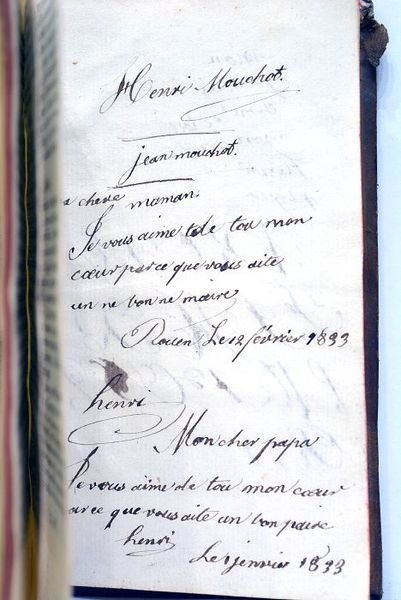 Henri Mouchot.
jean mouchot.
a chere maman.
Je vous aime tde tou mon
cœur parce que vous aite
un ne bon ne maire
Rouen Le 12 février 1833
henri
Mon cher papa
Je vous aime de tou mon cœur
arce que vous aite un bon paire
henri
Le 1 jenvrir 1833